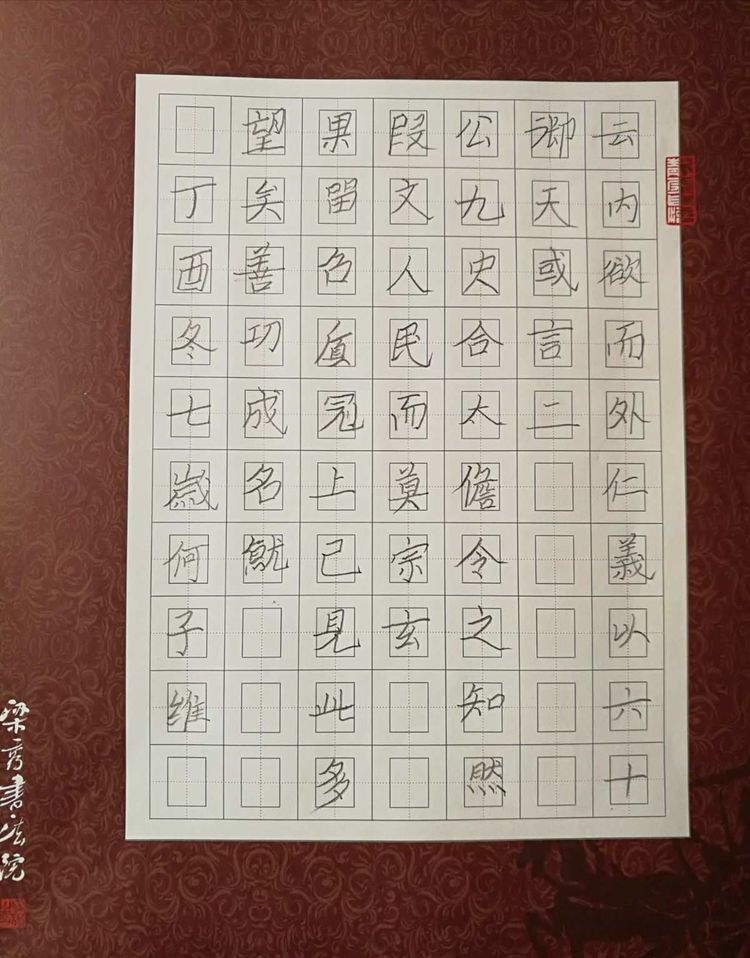 云内欲而外仁義以六十
天或言二
公九史合太儋令之知然
段文人民而莫宗玄
果留名冠上己見此多
望矣善功成名就
丁酉冬七歲何子维
梁秀書法院